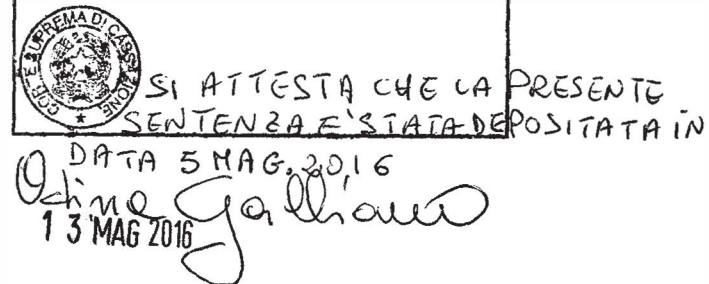 CORTE SUPREMA DI CASSAZIONE
SI ATTESTA CHE LA PRESENTE
SENTENZA E' STATA DEPOSITATA IN
DATA 5 MAG. 2016
13 MAG 2016